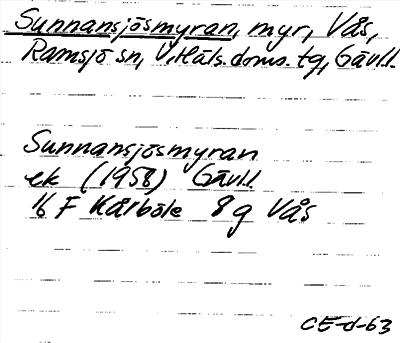 Sunnansjösmyran, myr, Vås,
Ramsjö sn, V.Häls.doms.tg, Gävl.l.
Sunnansjösmyran
ek (1958) Gävl.l.
16 F Kårböle 8 g Vås
CE-d-63